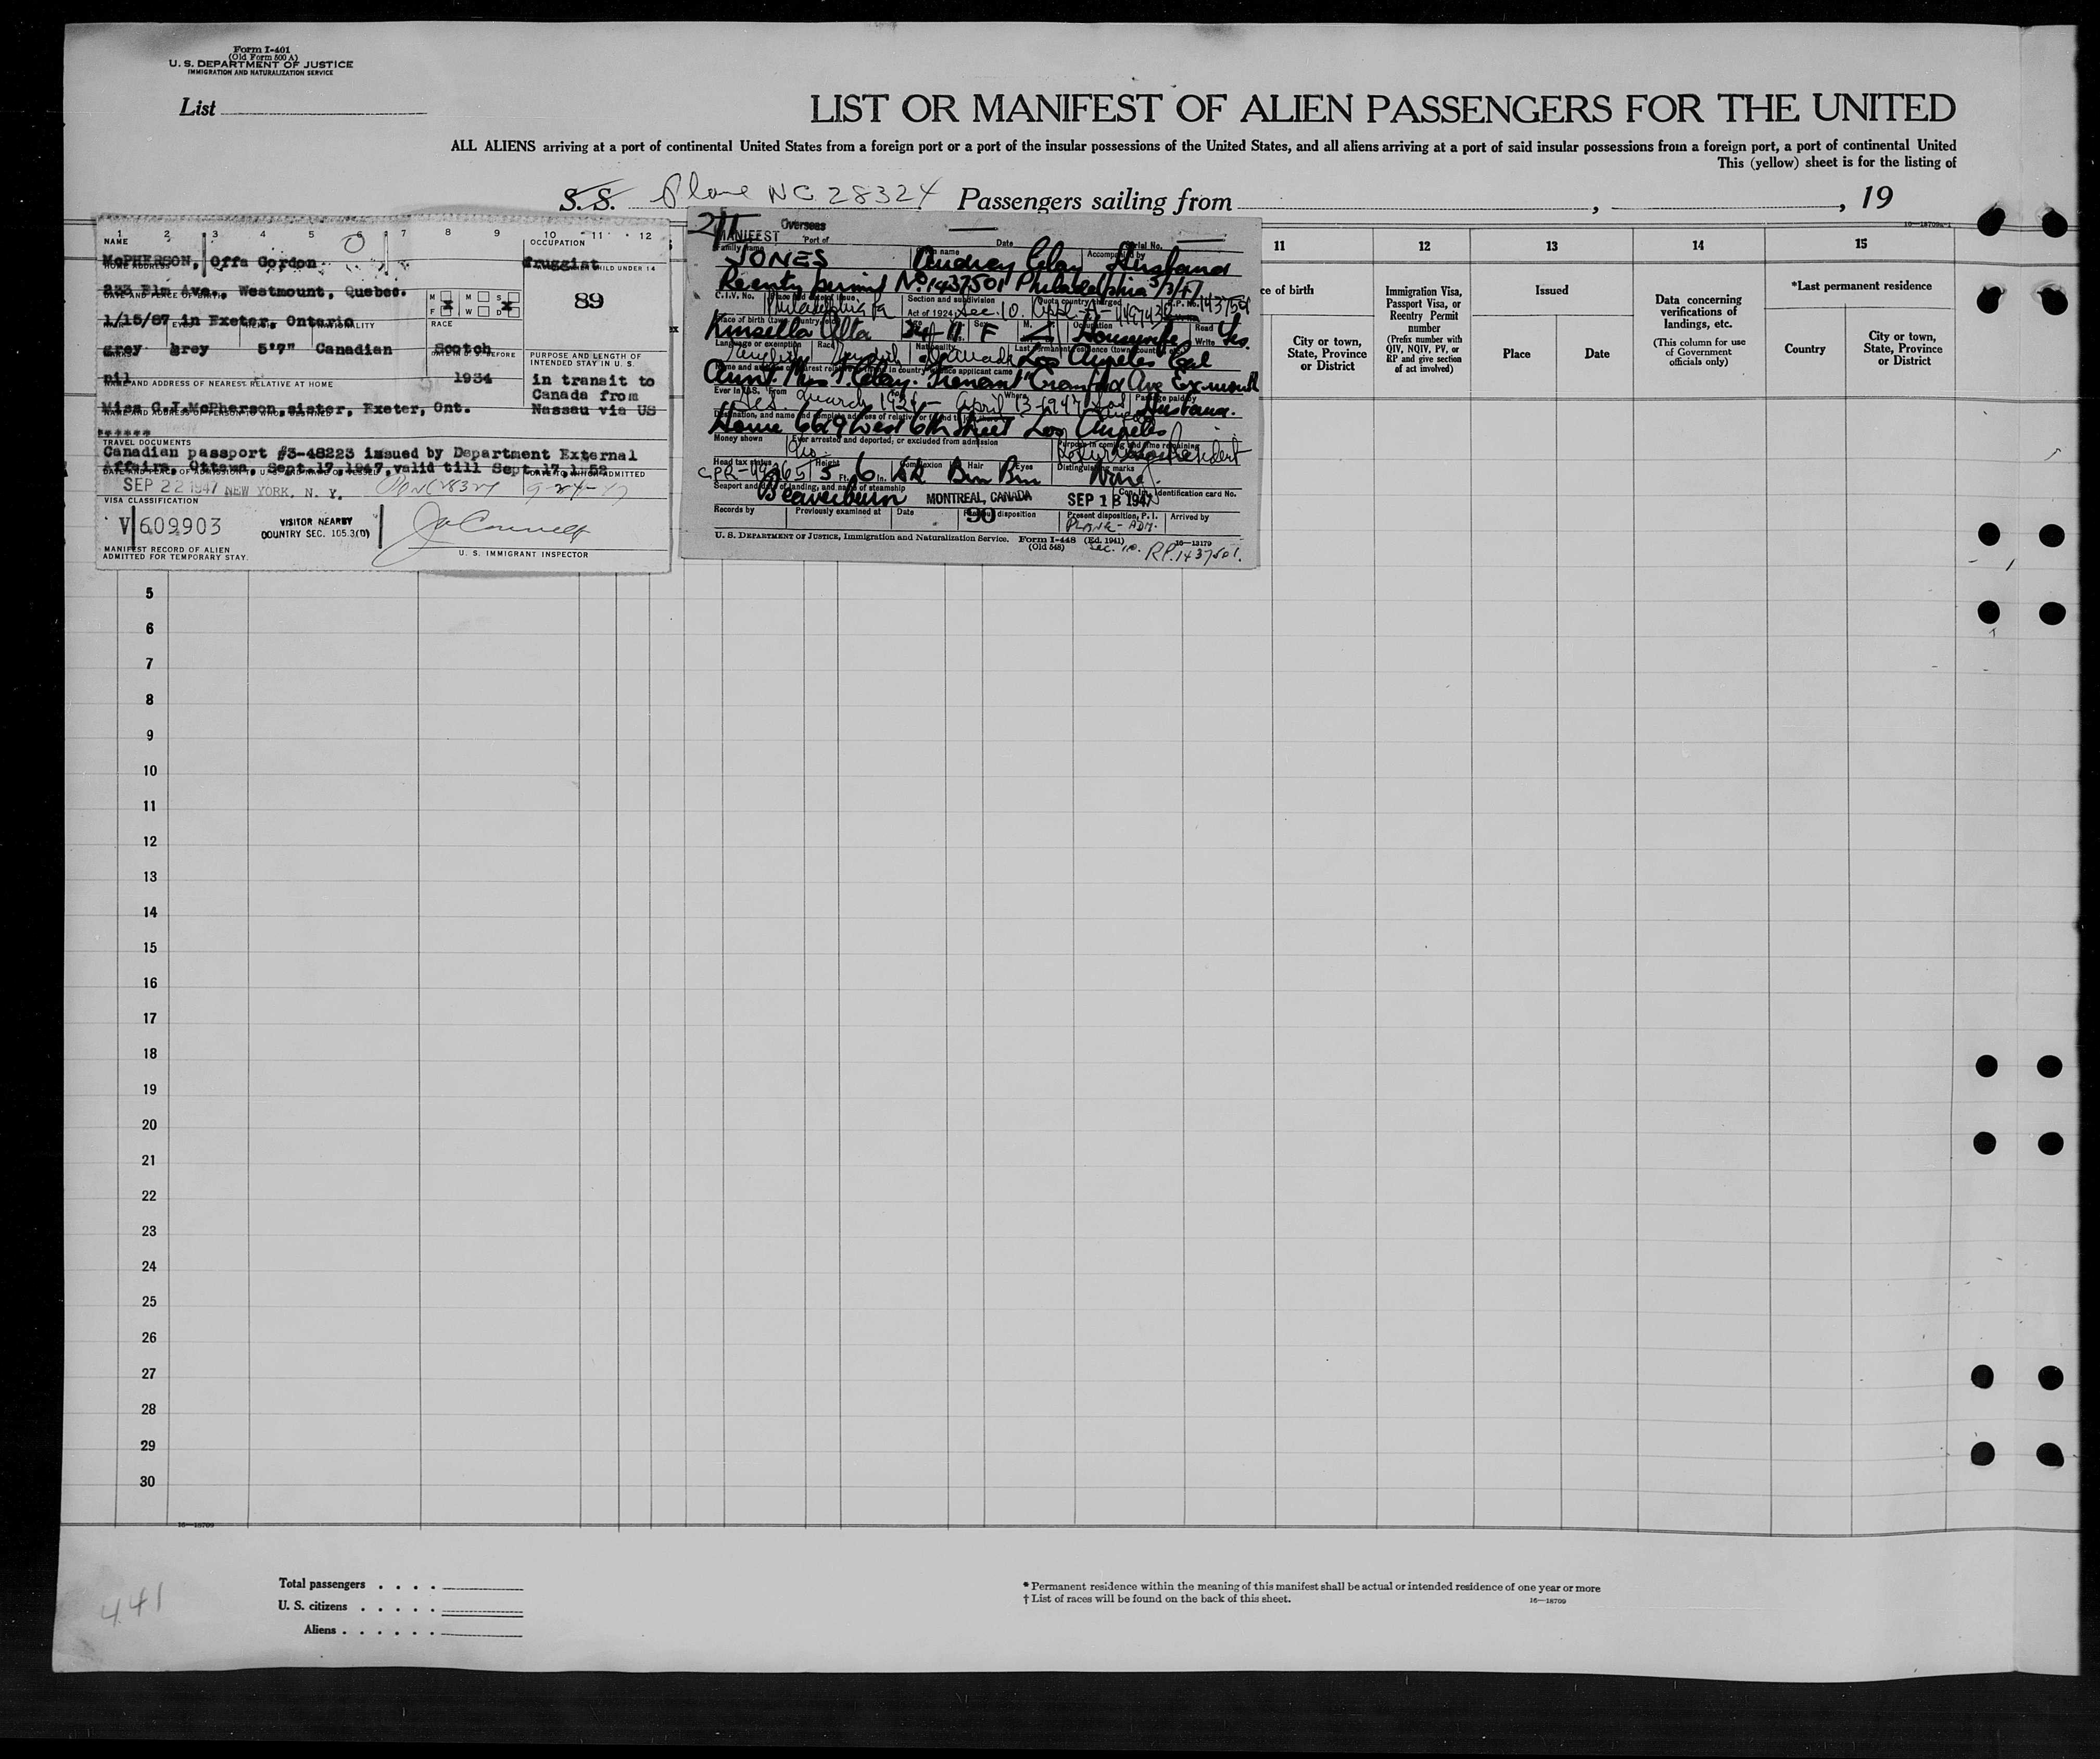 Form I-401
(Old Form 500 A)
U. S. DEPARTMENT OF JUSTICE
IMMIGRATION AND NATURALIZATION SERVICE
List
LIST OR MANIFEST OF ALIEN PASSENGERS FOR THE UNITED
ALL ALIENS arriving at a port of continental United States from a foreign port or a port of the insular possessions of the United States, and all aliens arriving at a port of said insular possessions from a foreign port, a port of continental United
This (yellow) sheet is for the listing of
S.S. Plane NC 28324 Passengers sailing from , , 19
1 2 3 4 5 6 7 8 9 10 11 12
NAME
OCCUPATION
McPHERSON, Offa Gordon
druggist
HOME ADDRESS
CHILD UNDER 14
233 Elm Ave., Westmount, Quebec.
89
DATE AND PLACE OF BIRTH
M F M W S D
1/15/87 in Exeter, Ontario
RACE
grey grey 5'7" Canadian Scotch
PURPOSE AND LENGTH OF INTENDED STAY IN U. S.
nil 1934
in transit to
Canada from
Nassau via US
NAME AND ADDRESS OF NEAREST RELATIVE AT HOME
Miss G.I.McPherson,sister, Exeter, Ont.
******
TRAVEL DOCUMENTS
Canadian passport #3-48223 issued by Department External
Affairs, Ottawa, Sept.17,1947,valid till Sept.17,1952
SEP 22 1947 NEW YORK, N. Y.
VISA CLASSIFICATION
V 609903
VISITOR NEARBY
COUNTRY SEC. 105.3(D)
MANIFEST RECORD OF ALIEN
ADMITTED FOR TEMPORARY STAY.
U. S. IMMIGRANT INSPECTOR
Overseas
MANIFEST Port of Date Serial No.
Family name Accompanied by
JONES Audrey Clay Husband
Reentry permit No. 1437501 Philadelphia 5/3/47
C.I.V. No.
Section and subdivision
Quota country charged
Philadelphia Pa Act of 1924 Sec. 10.
Kinsella Alta 24 F Housewife Read Write Yes
English English Canada Los Angeles Cal
Aunt. Mrs T. Clay. Cranford Ave Exmouth
Yes. March 1924 - April 13-1947 Husband.
Home 6629 West 6th Street Los Angeles
Money shown
Ever arrested and deported, or excluded from admission
Purpose in coming and time remaining
Head tax status Height Complexion Hair Eyes Distinguishing marks
5 Ft. 6 In. Brn Brn None
Seaport and date of landing, and name of steamship
Beaverburn MONTREAL, CANADA SEP 18 1947
Identification card No.
Records by Previously examined at Date disposition Present disposition, P. I. Arrived by
90 Plane - Adm.
U. S. DEPARTMENT OF JUSTICE, Immigration and Naturalization Service. Form I-448 (Ed. 1941)
(Old 548)
16—13179
Sec. 10. RP.1437501.
11 12 13 14 15
ce of birth
City or town, State, Province or District
Immigration Visa, Passport Visa, or Reentry Permit number
(Prefix number with QIV, NQIV, PV, or RP and give section of act involved)
Issued
Place
Date
Data concerning verifications of landings, etc.
(This column for use of Government officials only)
*Last permanent residence
Country
City or town, State, Province or District
5
6
7
8
9
10
11
12
13
14
15
16
17
18
19
20
21
22
23
24
25
26
27
28
29
30
16—18709
Total passengers . . . .
U. S. citizens . . . . .
Aliens . . . . . .
* Permanent residence within the meaning of this manifest shall be actual or intended residence of one year or more
† List of races will be found on the back of this sheet.
16—18709
441